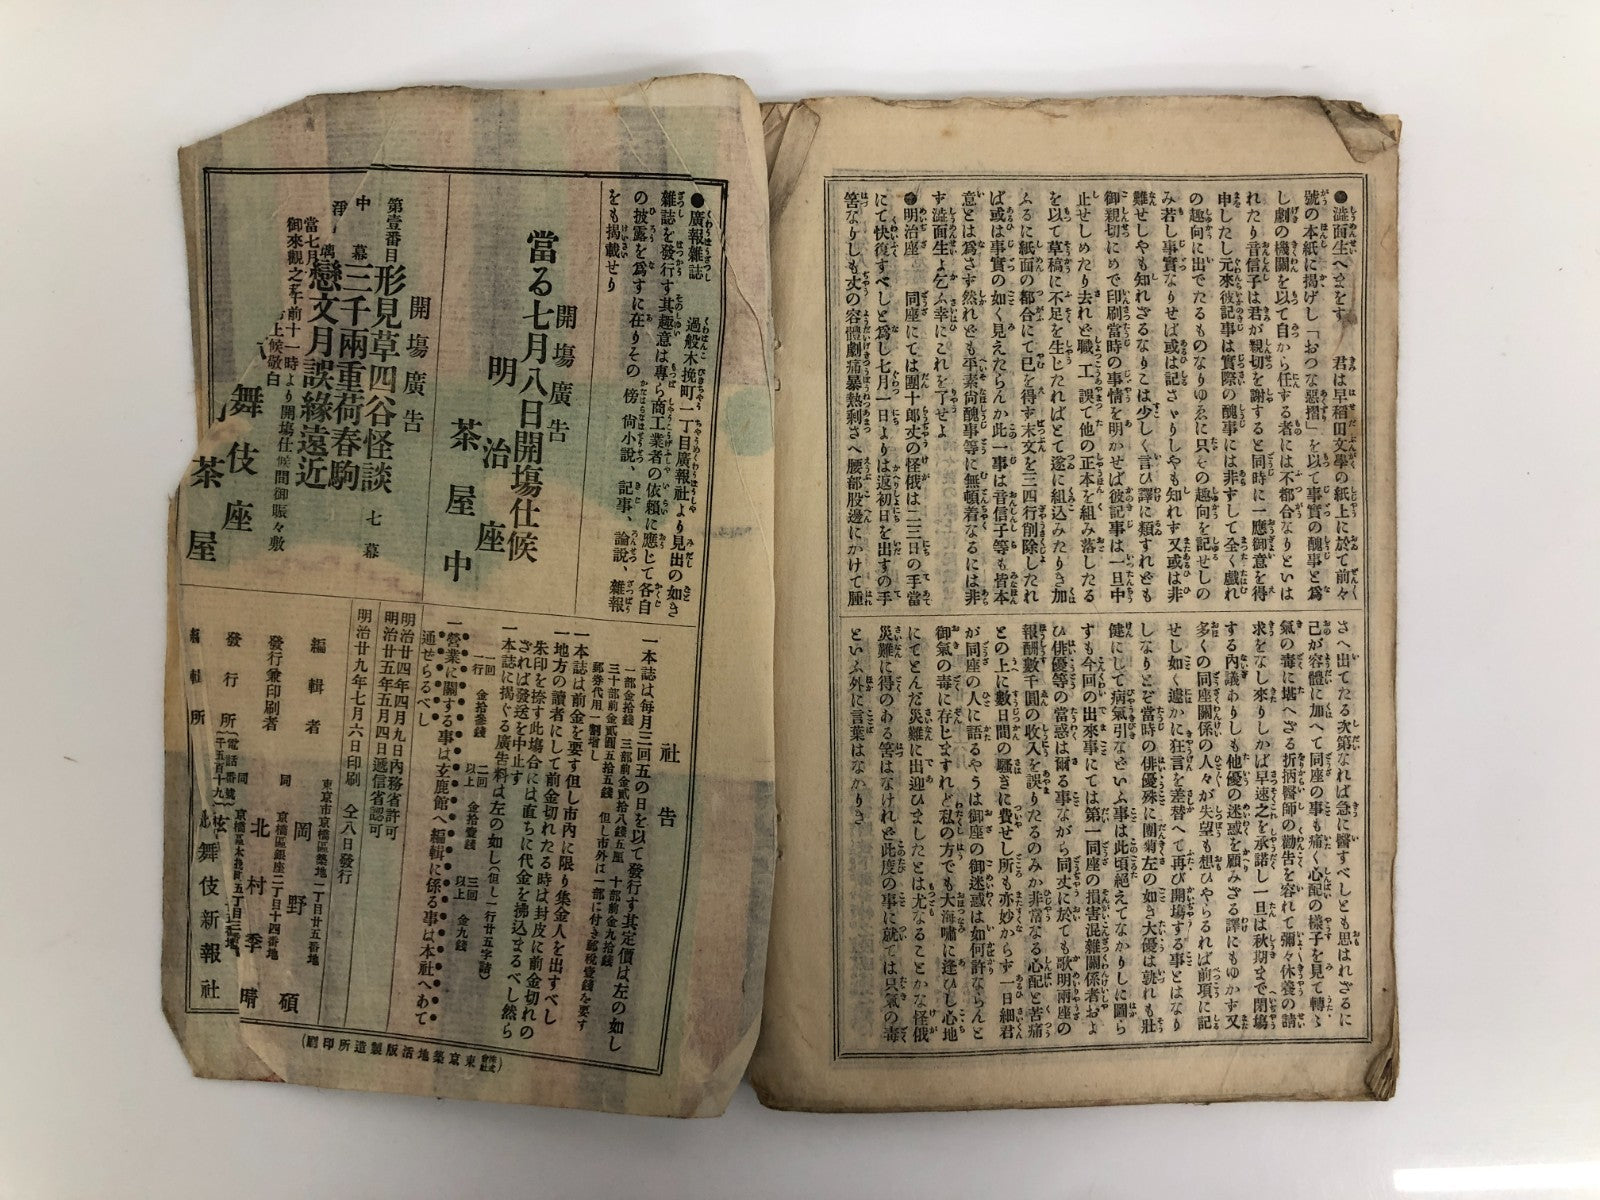 ●澁面生へまをす 君は早稻田文學の紙上に於て前々
號の本紙に揭げし「おつな惡摺」を以て事實の醜事と爲
し劇の機關を以て自から任する者には不都合なりといは
れたり音信子は君が親切を謝すると同時に一應御意を得
申したし元來彼記事は實際の醜事には非ずして全く戲れ
の趣向に出でたるものなりゆゑに只もの趣向を記せしの
み若し事實なりせば或は記さゞりしやも知れず又或は非
難せしやも知れざるなりこは少しく言ひ譯に類すれども
御親切にめで印刷當時の事情を明かせば彼記事は一旦中
止せしめたり去れど職工誤て他の正本を組み落したる
を以て草稿に不足を生じたればとて遂に組込みたりき加
ふるに紙面の都合にて已を得ず末文を三四行削除したれ
ば或は事實の如く見えたらんか此一事は音信子等も皆本
意とは爲さず然れども平素尙醜事等に無頓着なるには非
ず澁面生よ乞ふ幸にこれを了せよ
●明治座 同座にては團十郎丈の怪俄は二三日の手當
にて快復すべしと爲し七月一日よりは返初日を出すの手
筈なりしも丈の容體劇痛暴熱剩さへ腰部股邊にかけて腫
さへ出てたる次第なれば急に醫すべしとも思はれざるに
己が容體に加へて同座の事も痛く心配の樣子を見て轉ゝ
氣の毒に堪へざる折柄醫師の勸告を容れて彌々休養の請
求をなし來りしかば早速之を承諾し一旦は秋期まで閉塲
する內議ありしも他優の迷惑を顧みざる譯にもゆかず又
多くの同座關係の人々が失望も想ひやらるれば前項に記
せし如く遽かに狂言を差替へて再び開塲する事とはなり
しなりとぞ當時の俳優殊に團菊左の如き大優は孰れも壯
健にして病氣引などいふ事は此頃絕えてなかりしに圖ら
ずも今回の出來事にては第一同座の損害混雜關係者およ
び俳優等の當惑は爾る事ながら同丈に於ても歌明兩座の
報酬數千圓の收入を誤りたるのみか非常なる心配と苦痛
との上に數日間の騷ぎに費せし所も亦妙からず一日細君
が同座の人に語るやうは御座の御迷惑は如何許ならんと
御氣の毒に存じますれど私の方でも大海嘯に逢ひし心地
にてとんだ災難に出迎ひましたとは尤なることかな怪俄
災難に得のある筈はなけれど此度の事に就ては只氣の毒
といふ外に言葉はなかりき
●廣報雜誌 過般木挽町一丁目廣報社より見出の如き
雜誌を發行す其趣意は專ら商工業者の依賴に應じて各自
の披露を爲すに在りその傍尙小說、記事、論說、雜報
をも揭載せり
開塲廣告
當る七月八日開塲仕候
明治座
茶屋中
開塲廣告
第壹番目 形見草四谷怪談 七幕
中幕 三千兩重荷春駒
戀文月誤緣遠近
當七月
御來觀之
午前十一時より開塲仕候間御賑々敷
上候敬白
舞伎座
茶屋
社告
一本誌は每月三回五の日を以て發行す其定價は左の如し
一部金拾錢 三部前金貳拾八錢五厘 十部前金九拾錢
三十部前金貳圓五拾五錢 但し市外は一部に付き郵稅壹錢を要す
郵劵代用一割增し
一本誌は前金を要す但し市內に限り集金人を出すべし
一地方の讀者にして前金切れたる時は封皮に前金切れの
朱印を捺す此塲合には直ちに代金を拂込まるべし然ら
ざれば發送を中止す
一本誌に揭ぐる廣告料は左の如し(但し一行廿五字詰)
一回 一行 金拾參錢 二回以上 金拾壹錢 三回以上 金九錢
一營業に關する事は玄鹿館へ編輯に係る事は本社へあて
通せらるべし
明治廿四年四月九日內務省許可
明治廿五年五月四日遞信省認可
明治廿九年七月六日印刷 仝八日發行
東京市京橋區築地一丁目廿五番地
編輯者 岡野碩
同 京橋區銀座二丁目十四番地
發行兼印刷者 北村季晴
同 京橋區木挽町五丁目三番地
發行所
電話番號
千五百十九
編輯所 舞伎新報社
(株式會社東京築地活版製造所印刷)